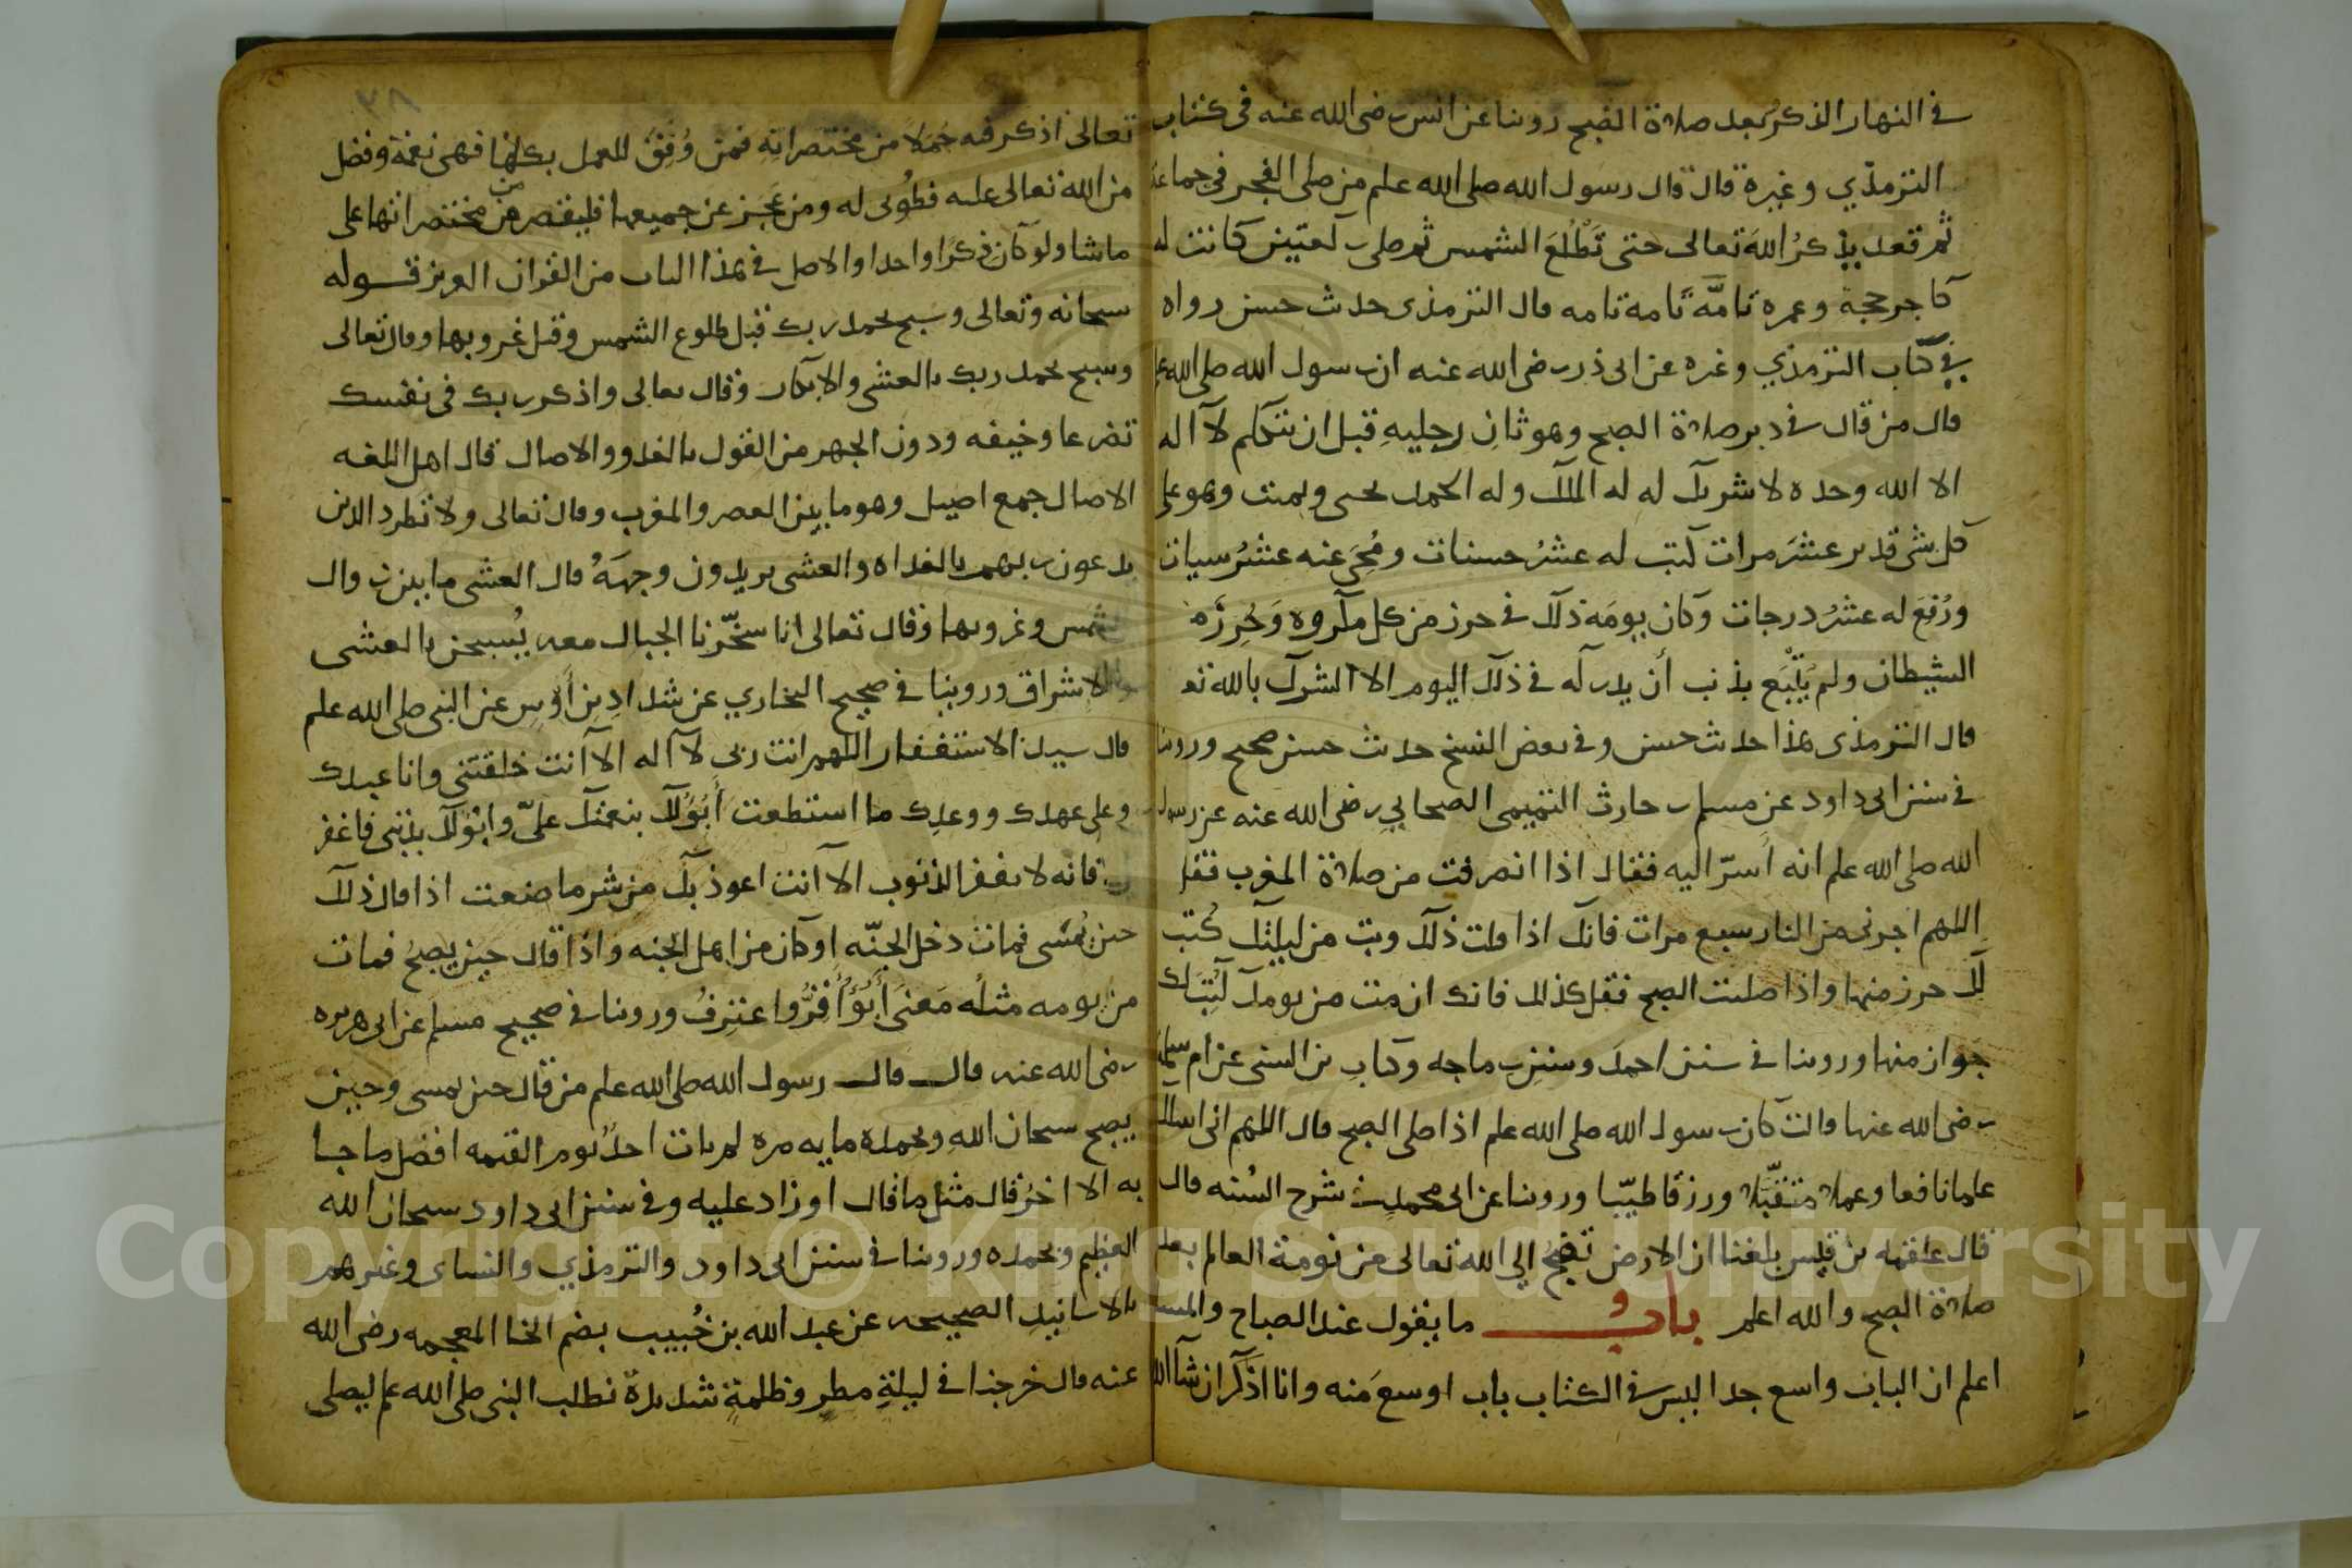 في النهار الذكر بعد صلاة الصبح روينا عن انس رضى الله عنه فى كتاب
الترمذي وغيره قال قال رسول الله صلى الله علم من صلى الفجر فى جماعة
ثم قعد يذكرُ اللهَ تعالى حتى تَطْلُعَ الشمس ثم صلى ركعتين كانت له
كاجر حجة وعمره تامَّة تامة تامه قال الترمذى حديث حسن رواه
في كتاب الترمذي وغيره عن ابى ذر رضى الله عنه ان رسول الله صلى الله
قال من قال فى دبر صلاة الصبح وهو ثانِ رجليهِ قبل ان يتكلم لا اله
الا الله وحده لا شريك له له الملك وله الحمد يحيى ويميت وهو على
كل شى قدير عشرَ مرات كتب له عشرُ حسنات ومُحِيَ عنه عشرُ سيات
ورُفِعَ له عشرُ درجات وكان يومَه ذلك فى حرز من كل مكروه وَحِرزَه
الشيطان ولم يَتْبَع بذنب أن يدركه فى ذلك اليوم الا الشرك بالله تع
قال الترمذى هذا حديث حسن وفى بعض النسخ حديث حسن صحيح وروينا
فى سنن ابى داود عن مسلم بن حارث التميمى الصحابي رضى الله عنه عن رسول
الله صلى الله علم انه اسرّ اليه فقال اذا انصرفت من صلاة المغرب فقل
اللهم اجرنى من النار سبع مرات فانك اذا قلت ذلك ومت من ليلتك كُتب
لك حرز منها واذا صليت الصبح فقل كذلك فانك ان مت من يومك كُتِبَ لك
جواز منها وروينا فى سنن احمد وسنن بن ماجه وكتاب بن السنى عن ام سلمة
رضى الله عنها قالت كان رسول الله صلى الله علم اذا صلى الصبح قال اللهم انى اسالك
علما نافعا وعملا متقبّلا ورزقا طيّبا وروينا عن ابى محمد فى شرح السُنه قال
قال علقمه بن قيس بلغنا ان الارض تعجُّ الى الله تعالى من نومة العالم بعد
صلاة الصبح والله اعلم بابُ ما يقول عند الصباح والمسا
اعلم ان الباب واسع جدا ليس فى الكتاب باب اوسعَ منه وانا اذكر ان شآ الله
٢٨
تعالى اذكر فيه جُمَلا من مختصراته فمن وُفِقَ للعمل بكلها فهى نعمة وفضل
من الله تعالى عليه فطُوبى له ومن عجز عن جميعها فليقتصر من مختصراتها على
ما شا ولو كان ذكرا واحدا والاصل فى هذا الباب من القران العزيز قوله
سبحانه وتعالى وسبح بحمد ربك قبل طلوع الشمس وقبل غروبها وقال تعالى
وسبح بحمد ربك بالعشى والابكار وقال تعالى واذكر ربك فى نفسك
تضرعا وخيفه ودون الجهر من القول بالغدو والاصال قال اهل اللغه
الاصال جمع اصيل وهو ما بين العصر والمغرب وقال تعالى ولا تطرد الذين
يدعون ربهم بالغداه والعشى يريدون وجهَهُ قال العشى ما بين زوال
الشمس وغروبها وقال تعالى انا سخّرنا الجبال معه يُسبحن بالعشى
والاشراق وروينا فى صحيح البخاري عن شداد بن أوس عن النبى صلى الله علم
قال سيد الاستغفار اللهم انت ربى لا اله الا انت خلقتنى وانا عبدك
وعلى عهدك ووعدك ما استطعت أبُوُلك بنعمتك علىّ وابولك بذنبى فاغفر
لى فانه لا يغفر الذنوب الا انت اعوذ بك من شر ما صنعت اذا قال ذلك
حين يُمسى فمات دخل الجنّه اوكان من اهل الجنه واذا قال حين يصبحُ فمات
من يومه مثلُه مَعنَى أَبُوُ أُقِرُّ واعترِفُ وروينا فى صحيح مسلم عن ابى هريره
رضى الله عنه قال قال رسول الله صلى الله علم من قال حين يمسى وحين
يصبح سبحان اللهِ وبحمده مايه مره لم يات احدٌ يوم القيمه افضل ما جا
به الا احدٌ قال مثل ما قال او زاد عليه وفى سنن ابى داود سبحان الله
العظيم وبحمده وروينا فى سنن ابى داود والترمذي والنساى وغيرهم
بالاسانيد الصحيحه عن عبد الله بن خُبيب بضم الخا المعجمه رضى الله
عنه قال خرجنا فى ليلةِ مطرٍ وظلمةٍ شديدة نطلب النبى صلى الله علم ليصلى
Copyright © King Saud University